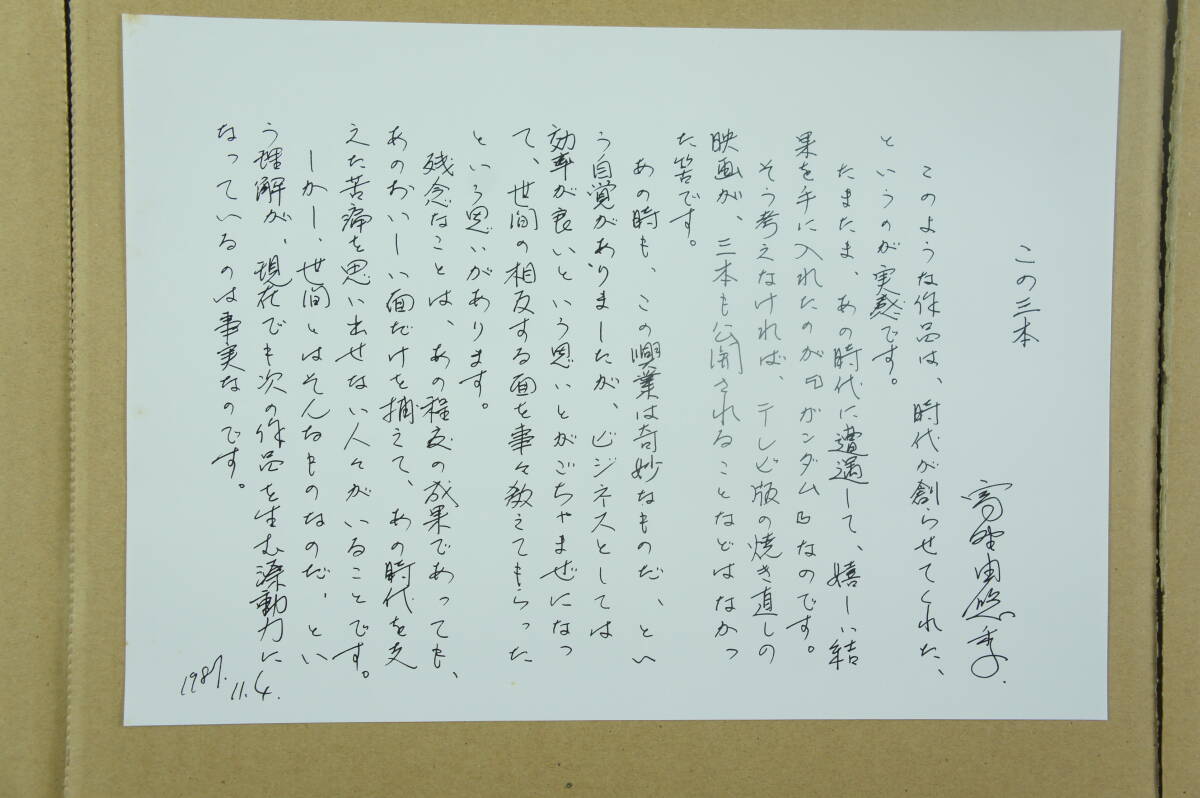 この三本
富野由悠季.
このような作品は、時代が創らせてくれた、
というのが実感です。
たまたま、あの時代に遭遇して、嬉しい結
果を手に入れたのが『ガンダム』なのです。
そう考えなければ、テレビ版の焼き直しの
映画が、三本も公開されることなどはなかっ
た筈です。
あの時も、この興業は奇妙なものだ、とい
う自覚がありましたが、ビジネスとしては
効率が良いという思いとがごちゃまぜになっ
て、世間の相反する面を事々教えてもらった
という思いがあります。
残念なことは、あの程度の成果であっても、
あのおいしい面だけを捕えて、あの時代を支
えた苦痛を思い出せない人々がいることです。
しかし、世間とはそんなものなのだ、とい
う理解が、現在でも次の作品を生む源動力に
なっているのは事実なのです。
1987.
11.4.